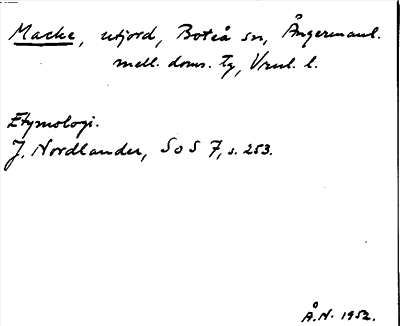 Macke, utjord, Boteå sn, Ångermanl.
mell. doms. tg, Vnl. l.
Etymologi.
J. Nordlander, SoS 7, s. 253.
Å.N. 1952.